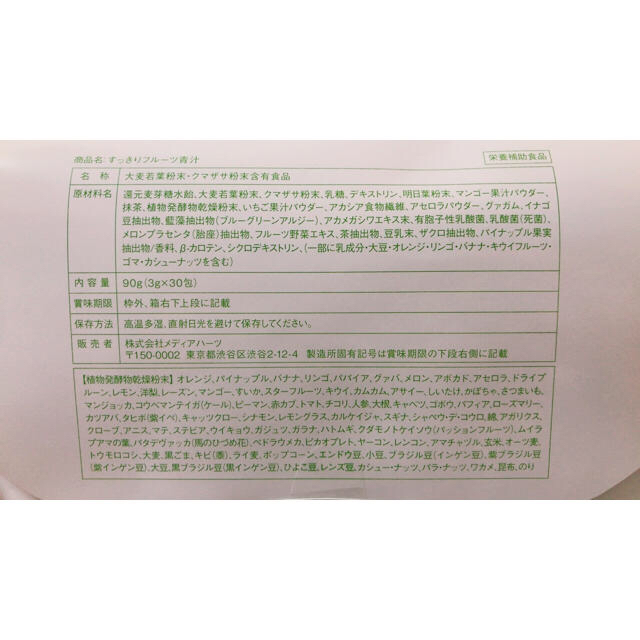 商品名:すっきりフルーツ青汁
栄養補助食品
名 称 大麦若葉粉末・クマザサ粉末含有食品
原材料名 還元麦芽糖水飴、大麦若葉粉末、クマザサ粉末、乳糖、デキストリン、明日葉粉末、マンゴー果汁パウダー、
抹茶、植物発酵物乾燥粉末、いちご果汁パウダー、アカシア食物繊維、アセロラパウダー、グァガム、イナゴ
豆抽出物、藍藻抽出物(ブルーグリーンアルジー)、アカメガシワエキス末、有胞子性乳酸菌、乳酸菌(死菌)、
メロンプラセンタ(胎座)抽出物、フルーツ野菜エキス、茶抽出物、豆乳末、ザクロ抽出物、パイナップル果実
抽出物/香料、β-カロテン、シクロデキストリン、(一部に乳成分・大豆・オレンジ・リンゴ・バナナ・キウイフルーツ・
ゴマ・カシューナッツを含む)
内 容 量 90g(3g×30包)
賞味期限 枠外、箱右下上段に記載
保存方法 高温多湿、直射日光を避けて保存してください。
販 売 者 株式会社メディアハーツ
〒150-0002 東京都渋谷区渋谷2-12-4 製造所固有記号は賞味期限の下段右側に記載
【植物発酵物乾燥粉末】オレンジ、パイナップル、バナナ、リンゴ、パパイア、グァバ、メロン、アボカド、アセロラ、ドライプ
ルーン、レモン、洋梨、レーズン、マンゴー、すいか、スターフルーツ、キウイ、カムカム、アサイー、しいたけ、かぼちゃ、さつまいも、
マンジョッカ、コウベマンテイガ(ケール)、ピーマン、赤カブ、トマト、チコリ、人参、大根、キャベツ、ゴボウ、パフィア、ローズマリー、
カツアバ、タヒボ(紫イペ)、キャッツクロー、シナモン、レモングラス、カルケイジャ、スギナ、シャペウ・デ・コウロ、綿、アガリクス、
クローブ、アニス、マテ、ステビア、ウイキョウ、ガジュツ、ガラナ、ハトムギ、クダモノトケイソウ(パッションフルーツ)、ムイラ
プアマの葉、パタデヴァッカ(馬のひづめ花)、ペドラウメカ、ピカオプレト、ヤーコン、レンコン、アマチャヅル、玄米、オーツ麦、
トウモロコシ、大麦、黒ごま、キビ(黍)、ライ麦、ポップコーン、エンドウ豆、小豆、ブラジル豆(インゲン豆)、紫ブラジル豆
(紫インゲン豆)、大豆、黒ブラジル豆(黒インゲン豆)、ひよこ豆、レンズ豆、カシュー・ナッツ、パラ・ナッツ、ワカメ、昆布、のり